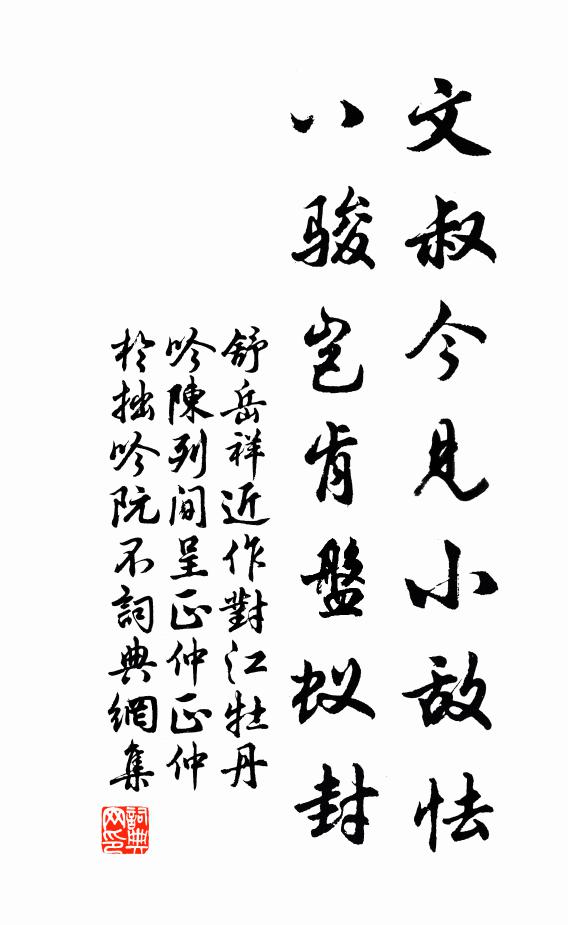 文叔今见小敌怯
八骏岂肯盤蚁封
舒岳祥近作對江牡丹
吟陳列间呈正仲正仲
於拙吟阮不詞典網集
詞典网印